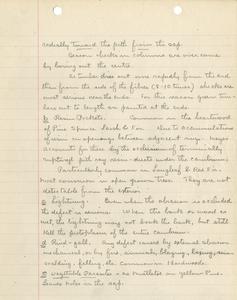 radially toward the pith from the sap.
Season checks in columns are over come
by boring out the centre.
As timber dries out more rapidly from the end
than from the side of the fibres (8-10 times) checks are
most serious near the ends. For this reason green tim-
bers cut to length are painted at the ends.
Resin Pockets. Common in the heartwood
of Pine Spruce Larch & Fir. Due to accumulations
of resin in openings between adjacent rings. Mayr
accounts for these by the occlusion of terminally
ruptured pith ray resin-ducts under the cambium.
Particularly common in Longleaf & Red Fir.
Most common in open grown trees. They are not
detectable from the exterior.
Lightning. Even when the abrasion is occluded
the defect is serious. When the bark is wood is
wet, the lightning may not break the bark, but still
kill the protoplasm of the entire cambium.
d) Rind-gall. Any defect caused by external abrasion
mechanical, or by fire, sun-scald,
scalding, felling, the common in Hardwoods.
Vegetable Parasites - as mistletoe on yellow Pine
Leaves holes in the sap.